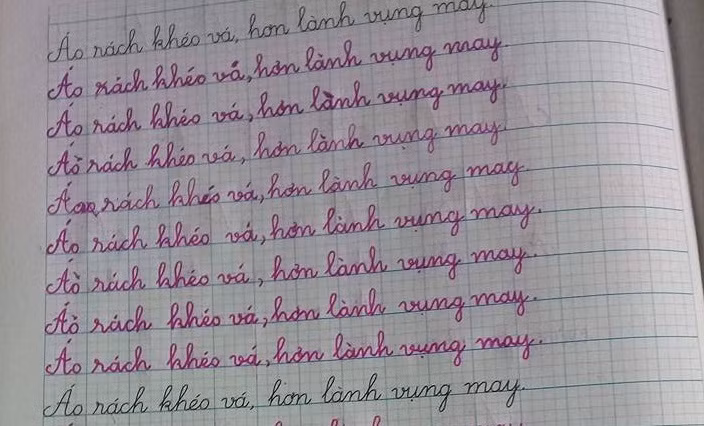 Áo rách khéo vá, hơn lành vụng may.
Áo rách khéo vá, hơn lành vụng may.
Áo rách khéo vá, hơn lành vụng may.
Áo rách khéo vá, hơn lành vụng may.
Áo rách khéo vá, hơn lành vụng may.
Áo rách khéo vá, hơn lành vụng may.
Áo rách khéo vá, hơn lành vụng may.
Áo rách khéo vá, hơn lành vụng may.
Áo rách khéo vá, hơn lành vụng may.
Áo rách khéo vá, hơn lành vụng may.